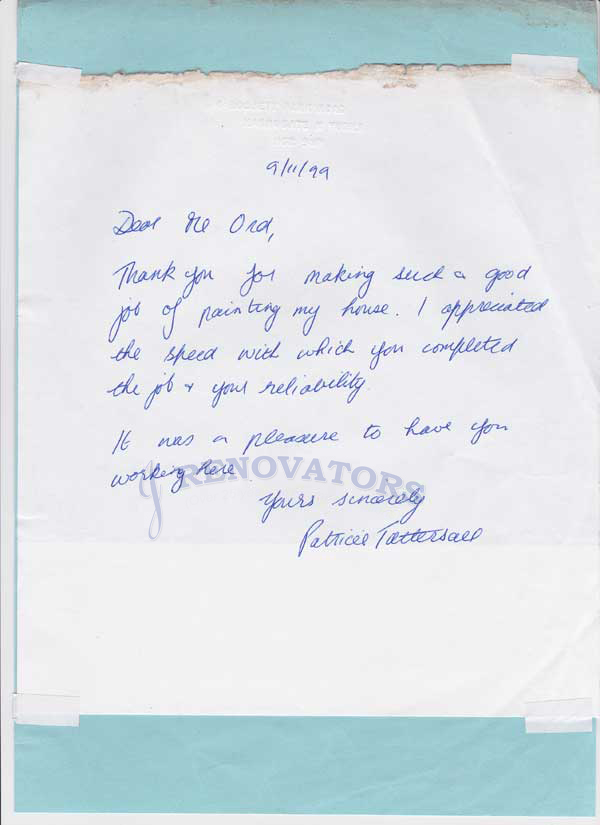 9/11/99
Dear Mr Ord,
Thank you for making such a good
job of painting my house. I appreciated
the speed with which you completed
the job & your reliability.
It was a pleasure to have you
working here
J RENOVATORS
Yours sincerely
Patricia Tattersall